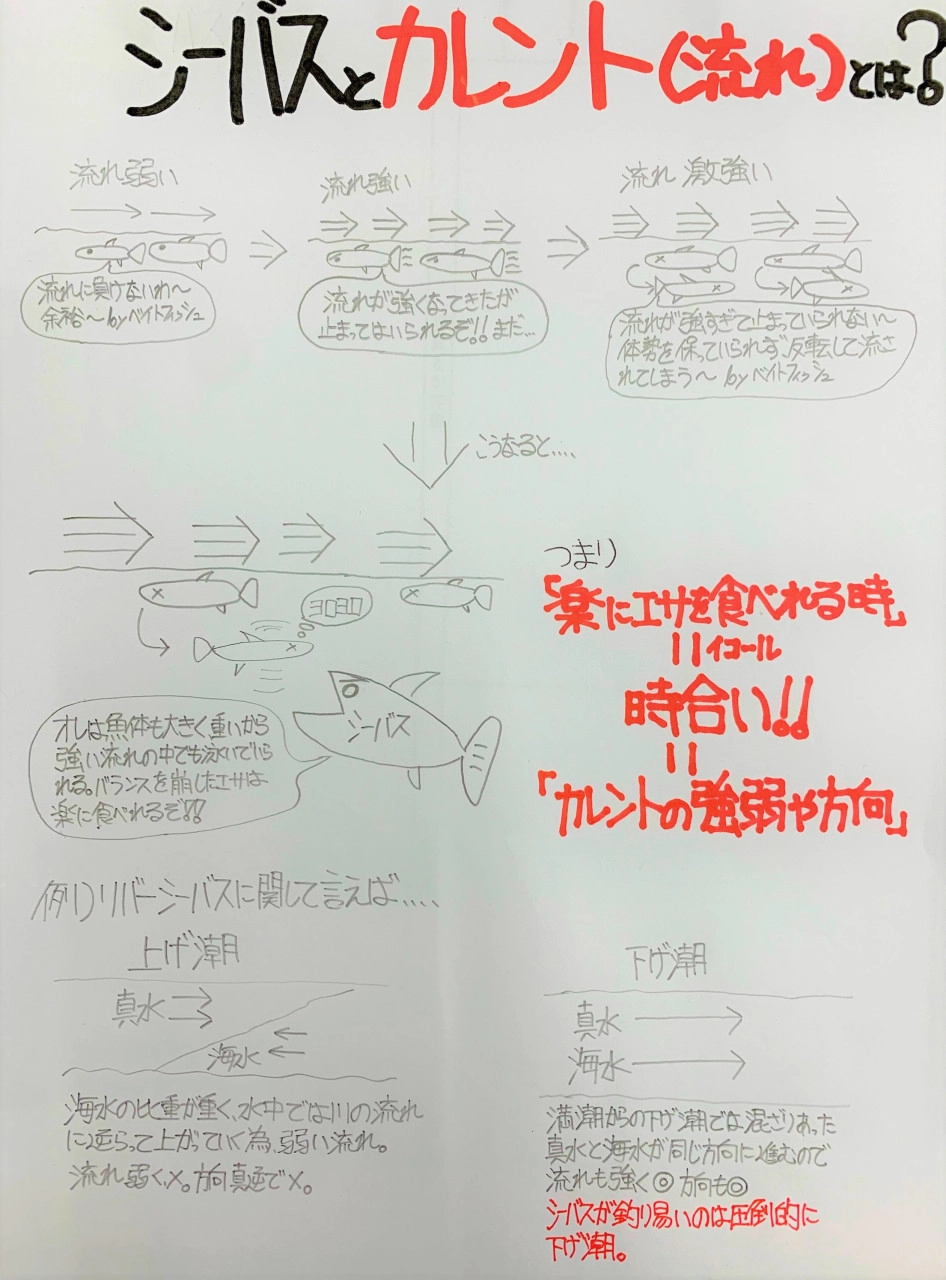 シーバスとカレント(流れ)とは?
流れ弱い
流れ強い
流れ 激強い
流れに負けないわ〜
余裕〜 byベイトフィッシュ
流れが強くなってきたが
止まってはいられるぞ!!まだ...
流れが強すぎて止まっていられない〜
体勢を保っていられず、反転して流さ
れてしまう〜 byベイトフィッシュ
こうなると....
ヨロヨロ
シーバス
オレは魚体も大きく重いから
強い流れの中でも泳いでいら
れる。バランスを崩したエサは
楽に食べれるぞ!!
つまり
「楽にエサを食べれる時」
||イコール
時合い!!
||
「カレントの強弱や方向」
例)リバーシーバスに関して言えば....
上げ潮
真水
海水
海水の比重が重く、水中では川の流れ
に逆らって上がっていく為、弱い流れ。
流れ弱く、×。方向真逆で×。
下げ潮
真水
海水
満潮からの下げ潮では混ざりあった
真水と海水が同じ方向に進むので
流れも強く◎ 方向も◎
シーバスが釣り易いのは圧倒的に
下げ潮。